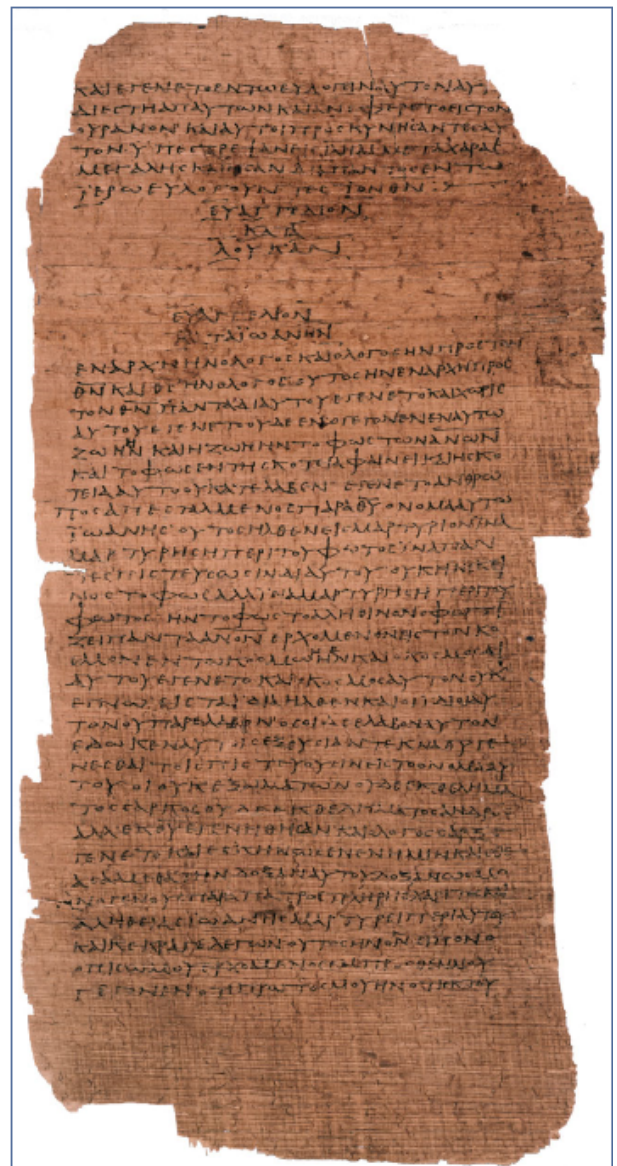 ΚΑΙΕΓΕΝΕΤΟΕΝΤΩΕΥΛΟΓΕΙΝΑΥΤΟΝΑΥ
ΔΙΕϹΤΗΑΠΑΥΤΩΝΚΑΙΑΝΕΦΕΡΕΤΟΕΙϹΤΟΝ
ΟΥΡΑΝΟΝΚΑΙΑΥΤΟΙΠΡΟϹΚΥΝΗϹΑΝΤΕϹΑΥ
ΤΟΝΥΠΕϹΤΡΕΨΑΝΕΙϹΙΛΗΜΜΕΤΑΧΑΡΑϹ
ΜΕΓΑΛΗϹΚΑΙΗϹΑΝΔΙΑΠΑΝΤΟϹΕΝΤΩ
ΙΕΡΩΕΥΛΟΓΟΥΝΤΕϹΤΟΝΘΝ
ΕΥΑΓΓΕΛΙΟΝ
ΚΑΤΑ
ΛΟΥΚΑΝ
ΕΥΑΓΓΕΛΙΟΝ
ΚΑΤΑΙΩΑΝΗΝ
ΕΝΑΡΧΗΗΝΟΛΟΓΟϹΚΑΙΟΛΟΓΟϹΗΝΠΡΟϹΤΟΝ
ΘΝΚΑΙΘϹΗΝΟΛΟΓΟϹΟΥΤΟϹΗΝΕΝΑΡΧΗΠΡΟϹ
ΤΟΝΘΝΠΑΝΤΑΔΙΑΥΤΟΥΕΓΕΝΕΤΟΚΑΙΧΩΡΙϹ
ΑΥΤΟΥΕΓΕΝΕΤΟΟΥΔΕΕΝΟΓΕΓΟΝΕΝΕΝΑΥΤΩ
ΖΩΗΗΝΚΑΙΗΖΩΗΗΝΤΟΦΩϹΤΩΝΑΝΩΝ
ΚΑΙΤΟΦΩϹΕΝΤΗϹΚΟΤΕΙΑΦΑΙΝΕΙΚΑΙΗϹΚΟ
ΤΕΙΑΑΥΤΟΟΥΚΑΤΕΛΑΒΕΝΕΓΕΝΕΤΟΑΝΘΡΩ
ΠΟϹΑΠΕϹΤΑΛΜΕΝΟϹΠΑΡΑΘΥΟΝΟΜΑΑΥΤΩ
ΪΩΑΝΗϹΟΥΤΟϹΗΛΘΕΝΕΙϹΜΑΡΤΥΡΙΟΝΙΝΑ
ΜΑΡΤΥΡΗϹΗΠΕΡΙΤΟΥΦΩΤΟϹΙΝΑΠΑΝ
ΤΕϹΠΙϹΤΕΥϹΩϹΙΝΔΙΑΥΤΟΥΟΥΚΗΝΕΚΕΙ
ΝΟϹΤΟΦΩϹΑΛΛΙΝΑΜΑΡΤΥΡΗϹΗΠΕΡΙΤΟΥ
ΦΩΤΟϹΗΝΤΟΦΩϹΤΟΑΛΗΘΙΝΟΝΟΦΩΤΕΙ
ΖΕΙΠΑΝΤΑΑΝΟΝΕΡΧΟΜΕΝΟΝΕΙϹΤΟΝΚΟ
ϹΜΟΝΕΝΤΩΚΟϹΜΩΗΝΚΑΙΟΚΟϹΜΟϹΔΙ
ΑΥΤΟΥΕΓΕΝΕΤΟΚΑΙΟΚΟϹΜΟϹΑΥΤΟΝΟΥΚ
ΕΓΝΩΕΙϹΤΑΙΔΙΑΗΛΘΕΝΚΑΙΟΙΙΔΙΟΙΑΥ
ΤΟΝΟΥΠΑΡΕΛΑΒΟΝΟϹΟΙΔΕΕΛΑΒΟΝΑΥΤΟΝ
ΕΔΩΚΕΝΑΥΤΟΙϹΕΞΟΥϹΙΑΝΤΕΚΝΑΘΥΓΕ
ΝΕϹΘΑΙΤΟΙϹΠΙϹΤΕΥΟΥϹΙΝΕΙϹΤΟΟΝΟΜΑΑΥ
ΤΟΥΟΙΟΥΚΕΞΑΙΜΑΤΩΝΟΥΔΕΕΚΘΕΛΗΜΑ
ΤΟϹϹΑΡΚΟϹΟΥΔΕΕΚΘΕΛΗΜΑΤΟϹΑΝΔΡΟϹ
ΑΛΛΑΕΚΘΥΕΓΕΝΗΘΗϹΑΝΚΑΙΟΛΟΓΟϹϹΑΡΞΕ
ΓΕΝΕΤΟΚΑΙΕϹΚΗΝΩϹΕΝΕΝΗΜΙΝΚΑΙΕΘΕ
ΑϹΑΜΕΘΑΤΗΝΔΟΞΑΝΑΥΤΟΥΔΟΞΑΝΩϹΜΟ
ΝΟΓΕΝΟΥϹΠΑΡΑΠΑΤΡΟϹΠΛΗΡΗϹΧΑΡΙΤΟϹΚΑΙ
ΑΛΗΘΕΙΑϹΙΩΑΝΗϹΜΑΡΤΥΡΕΙΠΕΡΙΑΥΤΟΥ
ΚΑΙΚΕΚΡΑΓΕΛΕΓΩΝΟΥΤΟϹΗΝΟΝΕΙΠΟΝΟ
ΟΠΙϹΩΜΟΥΕΡΧΟΜΕΝΟϹΕΜΠΡΟϹΘΕΝΜΟΥ
ΓΕΓΟΝΕΝΟΤΙΠΡΩΤΟϹΜΟΥΗΝΟΤΙΕΚΤΟΥ